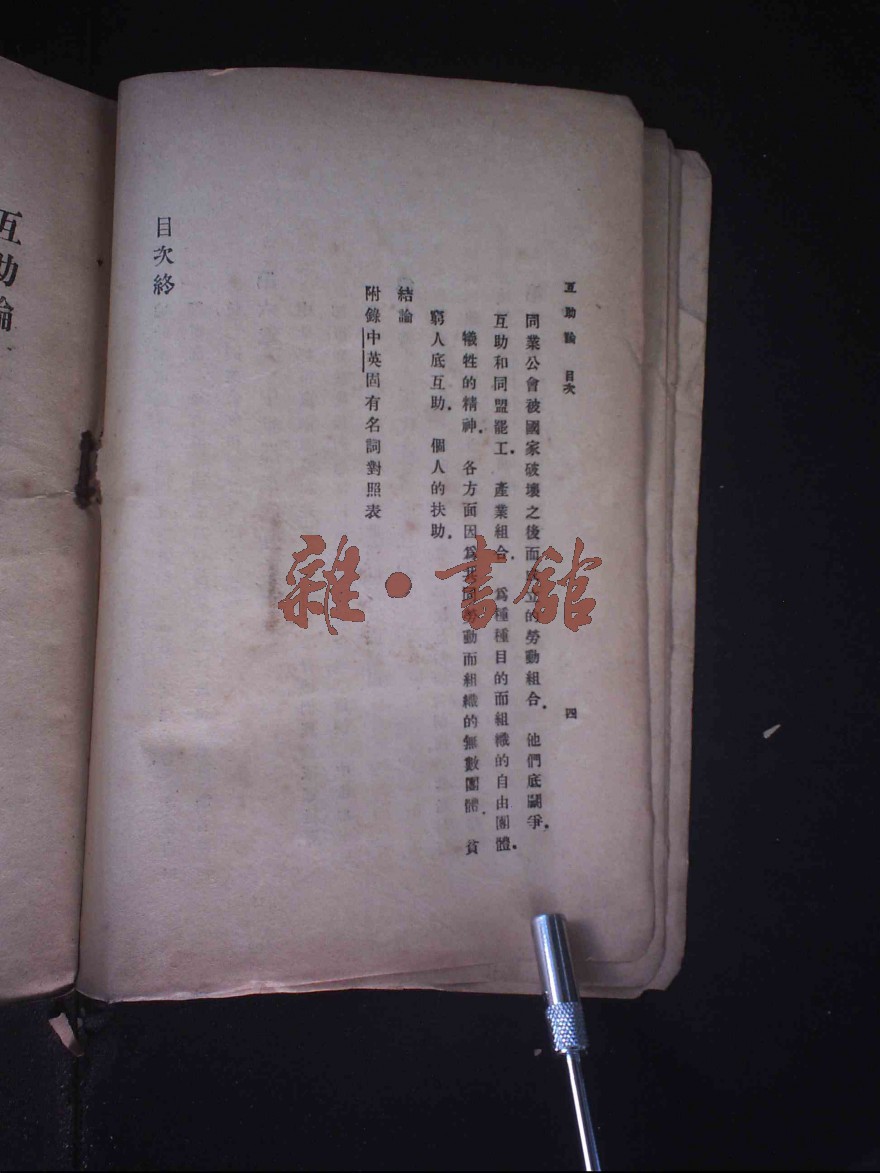 互助論 目次 四
同業公會被國家破壞之後而立的勞動組合．他們底鬭爭．
互助和同盟罷工．產業組合．爲種種目的而組織的自由團體．
犧牲的精神．各方面因爲共同勞動而組織的無數團體．貧
窮人底互助．個人的扶助．
結論
附錄中英固有名詞對照表
目次終
互助論
雜·書館